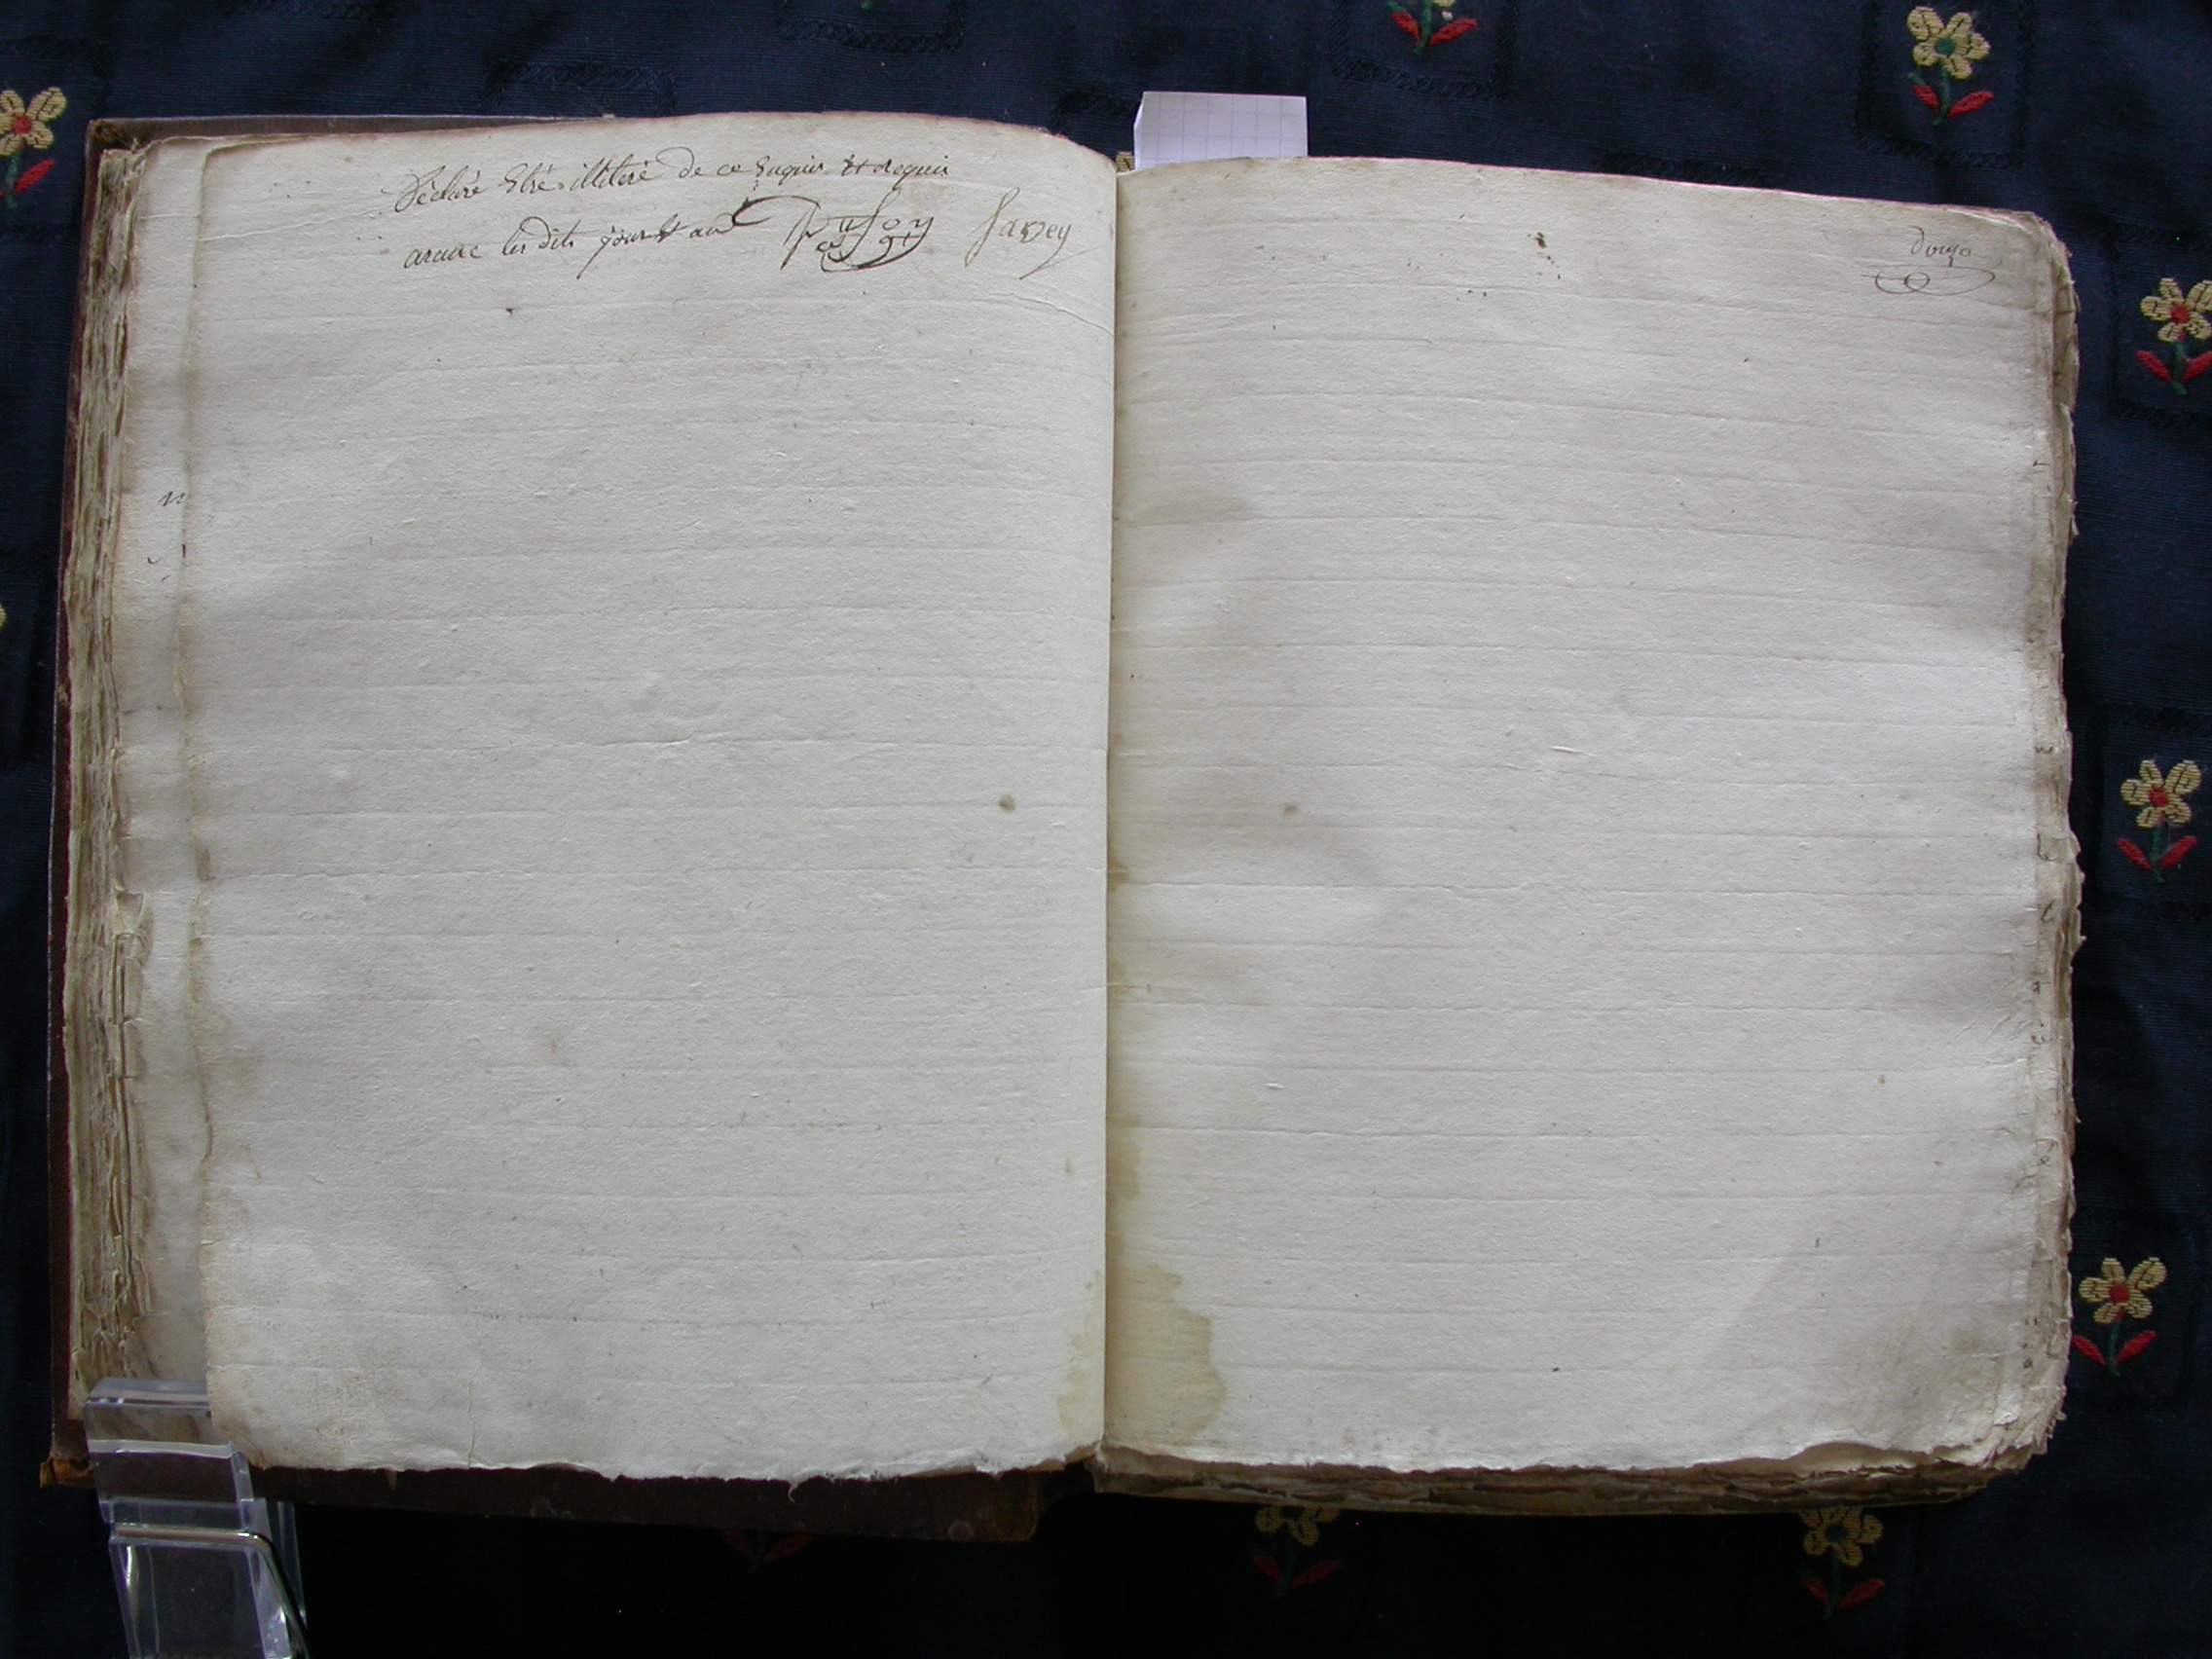 Déclaré Etre illiteré de ce Enquis Et requis
avant les dits jour Et an Dufour Savey
douze